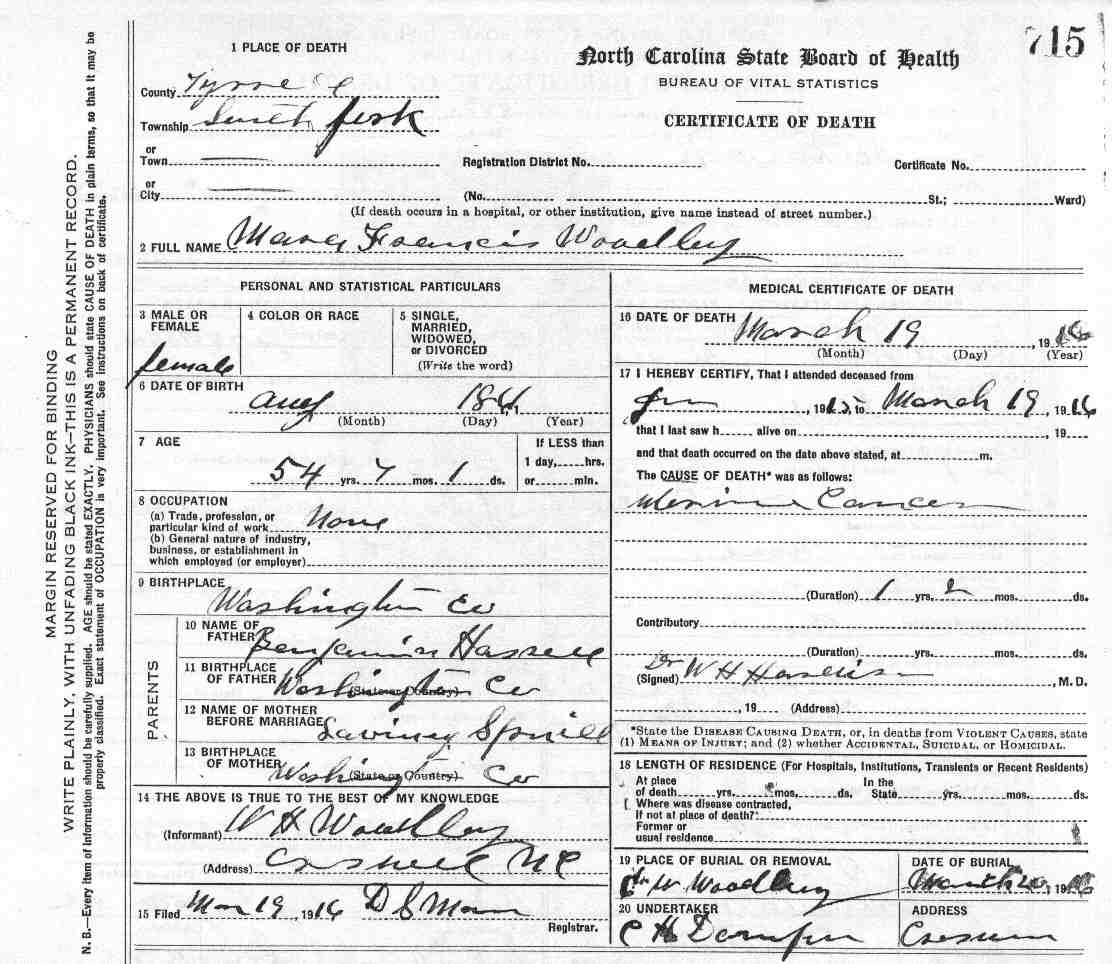 715
1 PLACE OF DEATH
North Carolina State Board of Health
BUREAU OF VITAL STATISTICS
CERTIFICATE OF DEATH
County
Township fork
or
Town
Registration District No.
Certificate No.
or
City
(No. St.; Ward)
(If death occurs in a hospital, or other institution, give name instead of street number.)
2 FULL NAME Francis Woodley
MARGIN RESERVED FOR BINDING
WRITE PLAINLY, WITH UNFADING BLACK INK—THIS IS A PERMANENT RECORD.
N. B.—Every item of information should be carefully supplied. AGE should be stated EXACTLY. PHYSICIANS should state CAUSE OF DEATH in plain terms, so that it may be
properly classified. Exact statement of OCCUPATION is very important. See instructions on back of certificate.
PERSONAL AND STATISTICAL PARTICULARS
3 MALE OR
FEMALE
female
4 COLOR OR RACE
5 SINGLE,
MARRIED,
WIDOWED,
or DIVORCED
(Write the word)
6 DATE OF BIRTH
Aug
(Month) (Day) (Year)
7 AGE
54 yrs. 7 mos. 1 ds.
If LESS than
1 day, hrs.
or min.
8 OCCUPATION
(a) Trade, profession, or
particular kind of work None
(b) General nature of industry,
business, or establishment in
which employed (or employer)
9 BIRTHPLACE
Washington Co
PARENTS
10 NAME OF
FATHER Benjamin Hassell
11 BIRTHPLACE
OF FATHER Washington Co
(State or Country)
12 NAME OF MOTHER
BEFORE MARRIAGE
13 BIRTHPLACE
OF MOTHER Washington Co
(State or Country)
14 THE ABOVE IS TRUE TO THE BEST OF MY KNOWLEDGE
(Informant) W H Woodley
(Address) Creswell NC
15 Filed Mar 19, 1916 D S
Registrar.
MEDICAL CERTIFICATE OF DEATH
16 DATE OF DEATH
March 19, 1916
(Month) (Day) (Year)
17 I HEREBY CERTIFY, That I attended deceased from
, 1915 to March 19, 1916
that I last saw h alive on , 19
and that death occurred on the date above stated, at m.
The CAUSE OF DEATH* was as follows:
Cancer
(Duration) 1 yrs. 2 mos. ds.
Contributory
(Duration) yrs. mos. ds.
(Signed) Dr W H , M. D.
, 19 (Address)
*State the DISEASE CAUSING DEATH, or, in deaths from VIOLENT CAUSES, state
(1) MEANS OF INJURY; and (2) whether ACCIDENTAL, SUICIDAL, or HOMICIDAL.
18 LENGTH OF RESIDENCE (For Hospitals, Institutions, Transients or Recent Residents)
At place
of death yrs. mos. ds.
In the
State yrs. mos. ds.
Where was disease contracted,
If not at place of death?
Former or
usual residence
19 PLACE OF BURIAL OR REMOVAL
W. Woodley
DATE OF BURIAL
March 20, 1916
20 UNDERTAKER
C H
ADDRESS